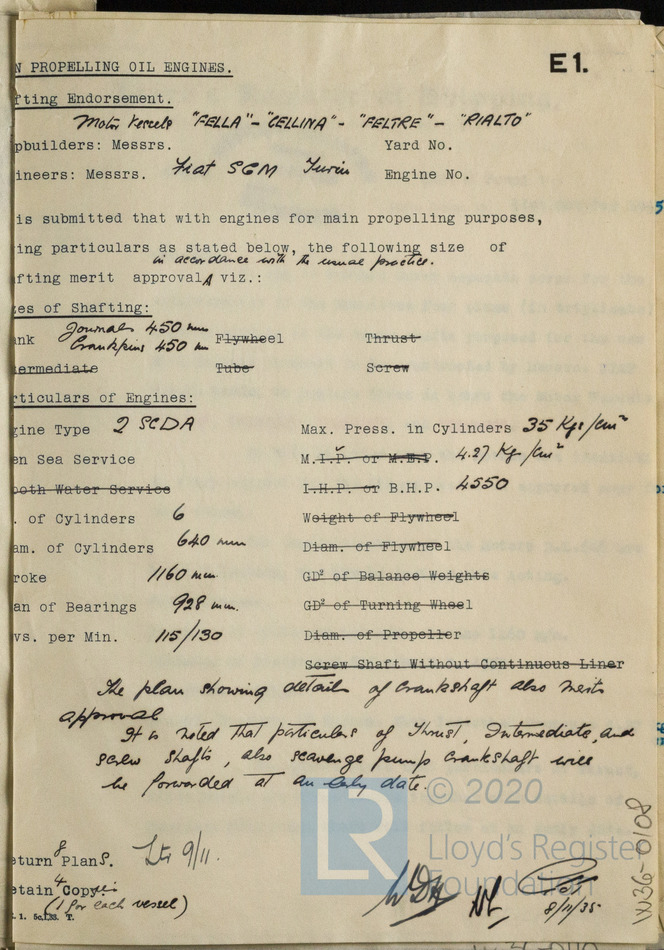 E1.
N PROPELLING OIL ENGINES.
fting Endorsement.
Motor Vessels "FELLA"-"CELLINA"-"FELTRE"-"RIALTO"
pbuilders: Messrs. Yard No.
ineers: Messrs. Fiat SGM Turin Engine No.
is submitted that with engines for main propelling purposes,
ing particulars as stated below, the following size of
in accordance with the usual practice.
afting merit approval, viz.:
zes of Shafting:
Journals 450 mm
ank Crankpins 450 mm Flywheel Thrust
termediate Tube Screw
rticulars of Engines:
gine Type 2 SCDA Max. Press. in Cylinders 35 Kgs/cm²
en Sea Service M.I.P. or M.E.P. 4.27 Kg/cm²
ooth Water Service I.H.P. or B.H.P. 4550
. of Cylinders 6 Weight of Flywheel
am. of Cylinders 640 mm Diam. of Flywheel
roke 1160 mm GD² of Balance Weights
an of Bearings 928 mm. GD² of Turning Wheel
vs. per Min. 115/130 Diam. of Propeller
Screw Shaft Without Continuous Liner
The plan showing details of crankshaft also merits
approval
It is noted that particulars of Thrust, Intermediate, and
screw shafts, also scavenge pump crankshaft will
be forwarded at an early date.
© 2020
LR
Lloyd's Register
Foundation
8
eturn Plans. Ltr 9/11.
4
etain Copies
(1 for each vessel)
8/11/35
W36-0108